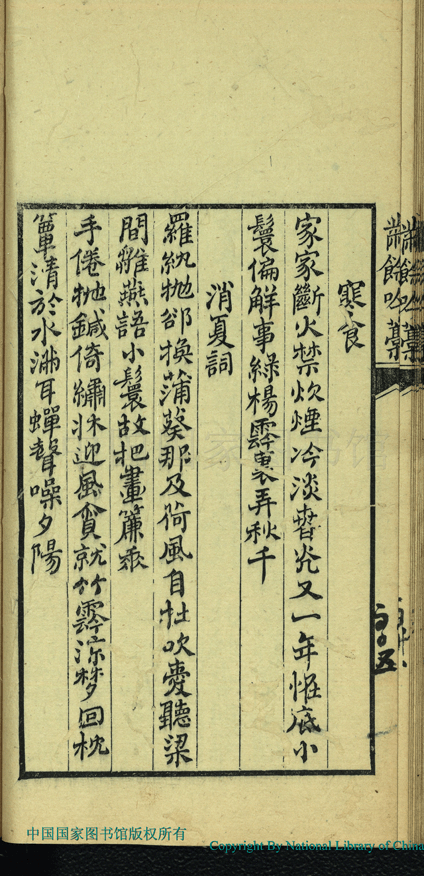 寒食
家家斷火禁炊煙冷淡春光又一年惟底小
鬟偏解事綠楊雰裏弄秋千
消夏詞
羅紈拋卻換蒲葵那及荷風自在吹愛聽梁
間雛燕語小鬟故把畫簾垂
手倦拋鍼倚繡牀迎風貪就竹雰涼夢回枕
簟清於水滿耳蟬聲噪夕陽
餘吟藳
中国国家图书馆版权所有
Copyright By National Library of China